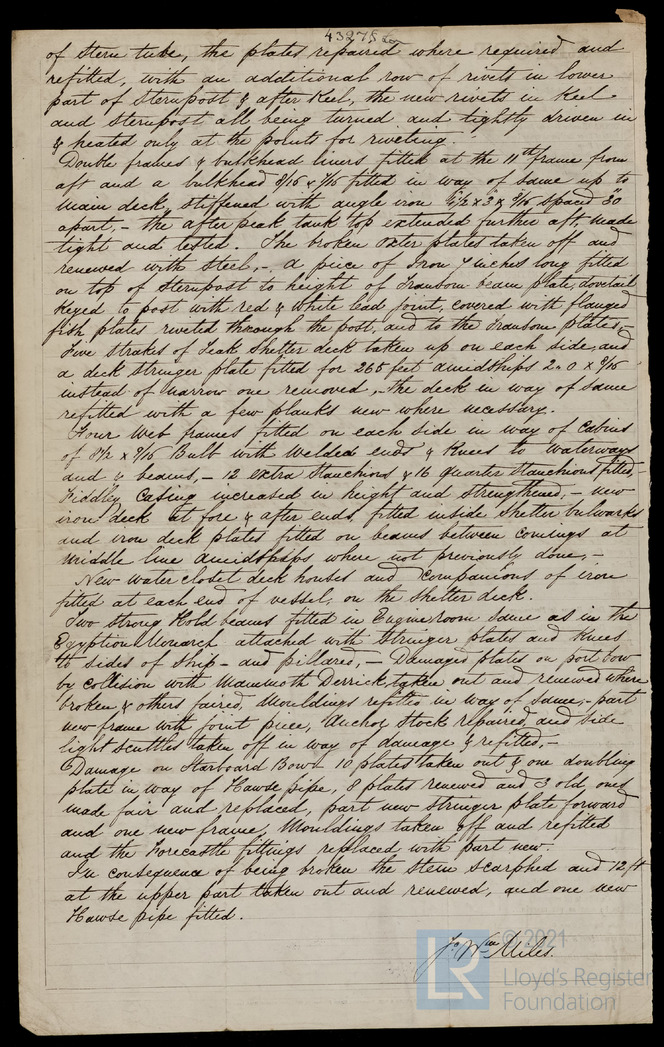 43275
of stern tube, the plates repaired where required and
refitted, with an additional row of rivets in lower
part of Sternpost & after Keel, the new rivets in Keel
and Sternpost all being turned and tightly driven in
& heated only at the points for riveting.
Double frames & bulkhead liners fitted at the 11th frame from
aft and a bulkhead 8/16 & 7/16 fitted in way of same up to
Main deck, stiffened with angle iron x 3 x 8/16 spaced 30"
apart, - the after peak tank top extended further aft, made
tight and tested. The broken oxter plates taken off and
renewed with steel, -. A piece of iron 7 inches long fitted
on top of Sternpost to height of transom beam plate, dovetail
keyed to post with red & white lead joint, covered with flanged
fish plates riveted through the post, and to the transom plates, -
Five strakes of Teak Shelter deck taken up on each side, and
a deck stringer plate fitted for 265 feet amidships 2.0 x 9/16
instead of narrow one removed, - the deck in way of same
refitted with a few planks new where necessary.
Four Web frames fitted on each side in way of Cabins
of 8 1/2 x 7/16 Bulb with Welded ends & Knees to waterways
and & beams, - 12 extra Stanchions & 16 quarter Stanchions fitted, -
Fiddley Casing increased in height and strengthened, - new
iron deck at fore & after ends, fitted inside Shelter bulwarks
and iron deck plates fitted on beams between comings at
Middle line Amidships where not previously done, -
New water closet deck houses and Companions of iron
fitted at each end of vessel, on the Shelter deck.
Two strong Hold beams fitted in Engine room same as in the
Egyptian Monarch attached with Stringer plates and Knees
to sides of Ship - and pillared, - Damaged plates on port bow
by collision with Mammoth Derrick, taken out and renewed where
broken & others faired, Mouldings refitted in way of same, - part
new frame with joint piece, Anchor Stock repaired, and side
light scuttles taken off in way of damage & refitted, -
Damage on Starboard Bow - 10 plates taken out & one doubling
plate in way of Hawse pipe, 8 plates renewed and 3 old ones
made fair and replaced, part new stringer plate forward
and one new frame, Mouldings taken off and refitted
and the Forecastle fittings replaced with part new.
In consequence of being broken the stem scarphed and 12 ft
at the upper part taken out and renewed, and one new
Hawse pipe fitted.
Jo Wm Miles.
© 2021
LR
Lloyd's Register
Foundation